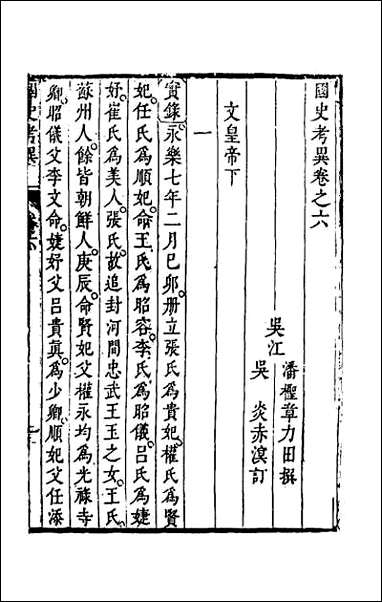 國史考異卷之六
吳江
潘檉章力田撰
吳炎赤溟訂
文皇帝下
一
實錄永樂七年二月己卯冊立張氏為貴妃權氏為賢
妃任氏為順妃命王氏為昭容李氏為昭儀呂氏為婕
妤崔氏為美人張氏故追封河間忠武王玉之女王氏
蘇州人餘皆朝鮮人庚辰命賢妃父權永均為光祿寺
卿昭儀父李文命婕妤父呂貴真為少卿順妃父任添
國史考異